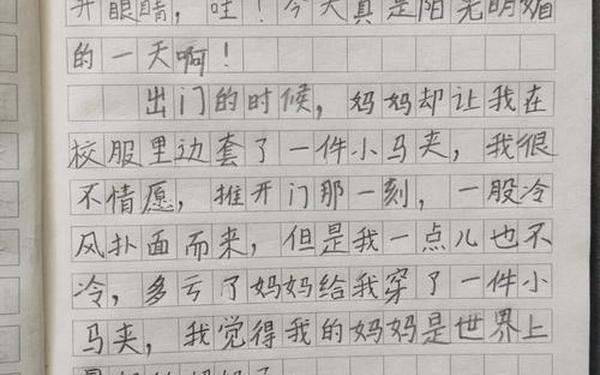 开眼睛，哇！今天真是阳光明媚
的一天啊！
出门的时候，妈妈却让我在
校服里边套了一件小马夹，我很
不情愿，推开门那一刻，一股冷
风扑面而来，但是我一点儿也不
冷，多亏了妈妈给我穿了一件小
马夹，我觉得我的妈妈是世界上